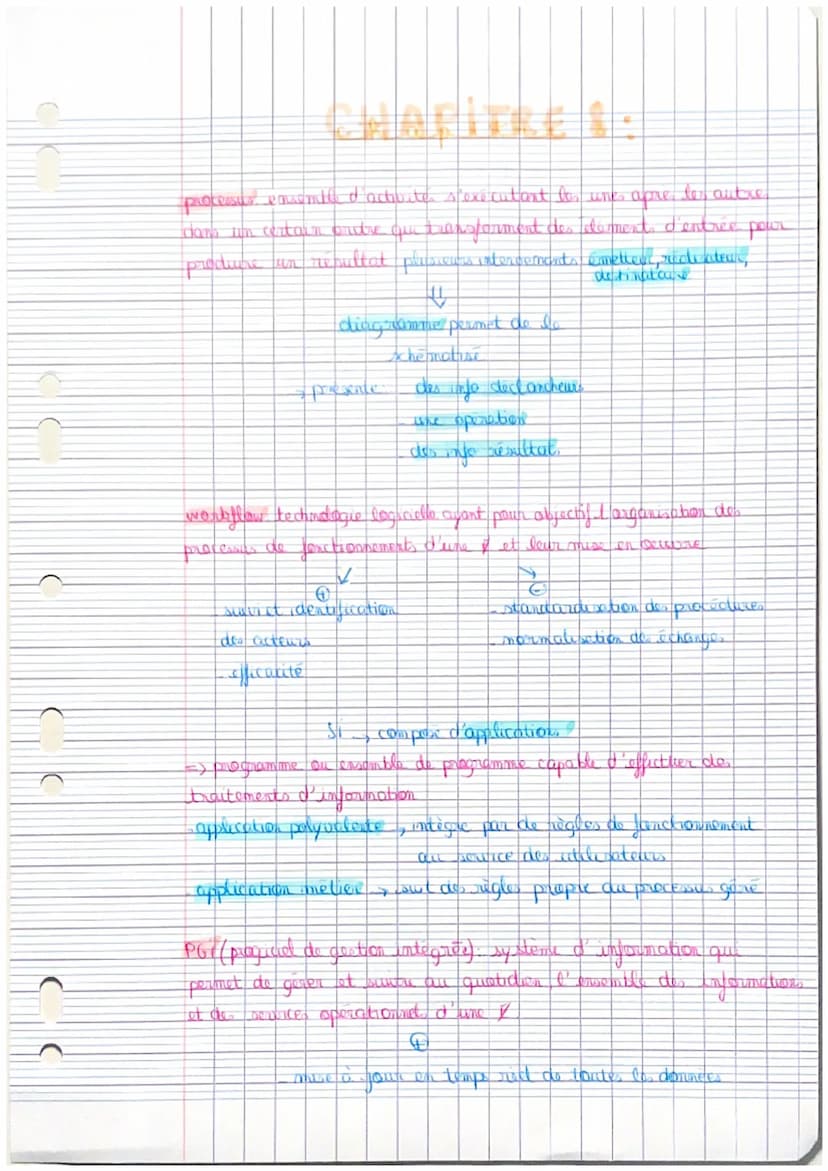 CHAPITRE 8 :
processus ensemble d'activités s'exécutant les unes après les autres
dans un certain ordre qui transforment des éléments d'entrée pour
produire un résultat plusieurs intervenants émetteur, réalisateur,
destinataire
⇓
diagramme permet de le
schématisé
→ présente: des info déclancheurs
- une opération
- des info résultat
workflow technologie logicielle ayant pour objectif l'organisation des
processus de fonctionnements d'une et leur mise en oeuvre
↙ ↘
⊕ ⊖
- suivi et identification - standardisation des procédures
des acteurs - normalisation des échanges
- efficacité
SI → composé d'applications
=> programme ou ensemble de programme capable d'effectuer des
traitements d'information
- application polyvalente → intègre pas de règles de fonctionnement
au service des utilisateurs
- application métier → suit des règles propre au processus géré
PGI (progiciel de gestion intégrée): système d'information qui
permet de gérer et suivre au quotidien, l'ensemble des informations
et des services opérationnel d'une
⊕
- mise à jour en temps réel de toutes les données